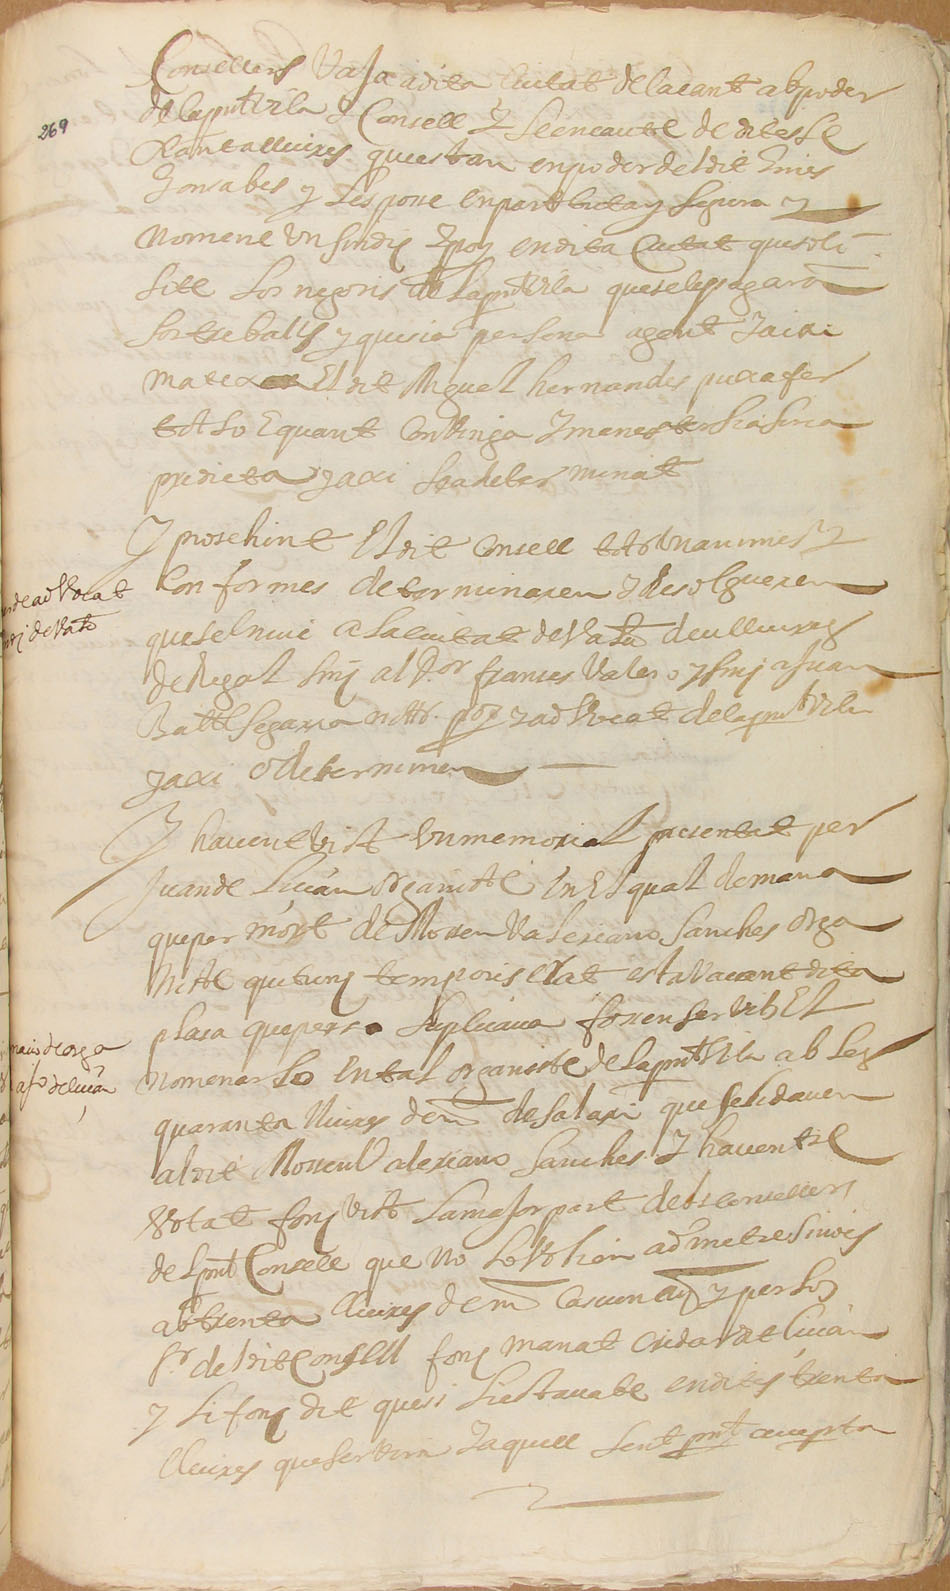 269
Consellers Vaja adita Ciutat de lacant ab poder
de la pnt vila y Consell y Se encaute de dites se
xanta lliures questan en poder del dit Gines
Gonsabes y Les pose en part tuta y Segura y
Nomene Un Sindic y por en dita Ciutat que soli
site Los negosis de La pnt Vila que se le pagaran
Sos treballs y que sia persona agent y aixi
mateix El dit Miguel hernandes puixa fer
tot so E quant Convinga y menester sia
predicta y axi fea determinat
Y prosehint El dit Consell tots Unanimes y
Conformes determinaren y Resolgueren
que sel nuie a La ciutat de Vala deu lliures
de Regal al Dor franses Valero y a Juan
Batt Segarra nott. por y adVocat de la pnt Vila
y axi o determinen
de adVocat
de Vala
Y havent Vist Un memorial presentat per
Juan de Lucan Organiste En El qual demana
que per mort de Mosen Valeriano Sanches Orga
niste qui tunc temporis erat esta Vacant dita
plasa que per so Suplicava fosen servits El
nomenarlo En tal organiste de La pnt Vila ab Les
quaranta lliures de m de Salari que se li daven
al dit Mosen Valeriano Sanches y havent se
Votat fonc Vist La major part dels consellers
del pnt Consell que No Lo Volien admetre Sinos
ab trenta lliures de m Cascun any y per Los
Sr del dit Consell fonc manat Cridar dit Lucan
y Li fonc dit que si Li estava be en dites trenta
lliures que Serviria y aquell Sent pnt accepta
de orga
de lucan